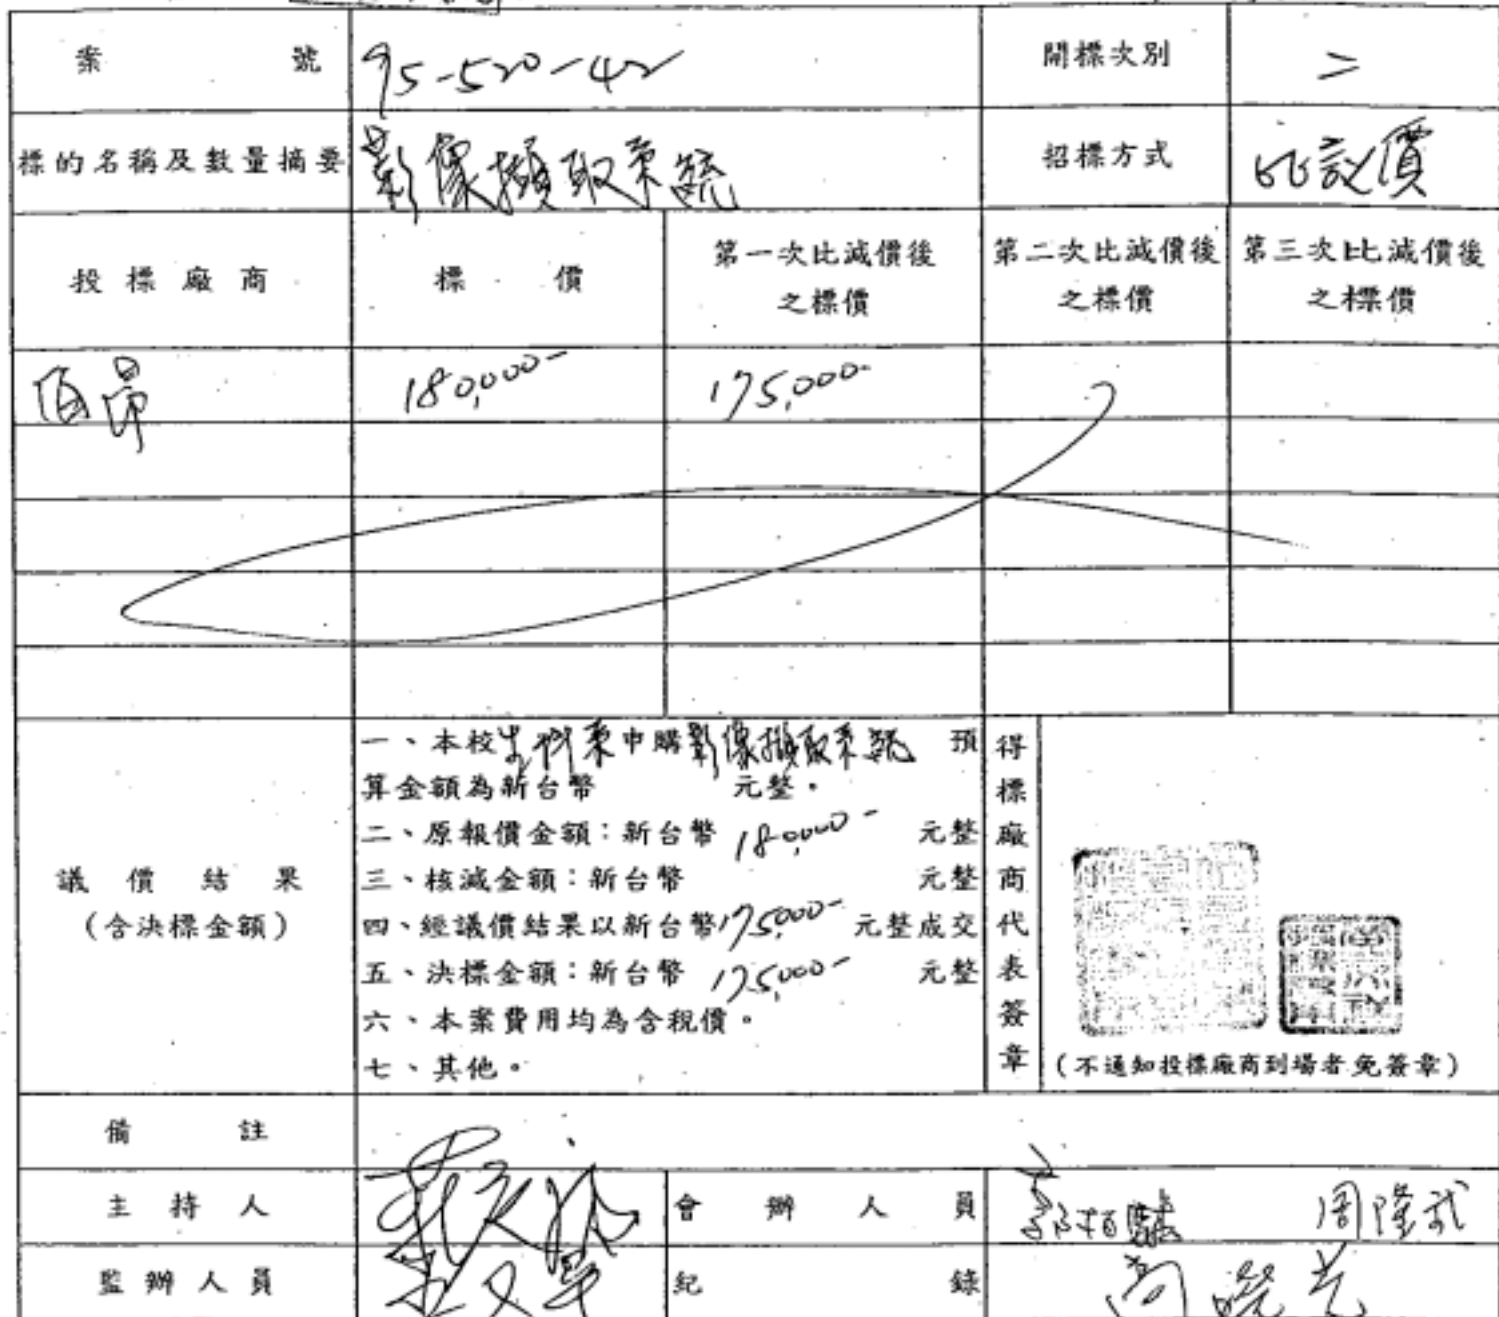 案號 95-520-42 開標次別 二
標的名稱及數量摘要 影像擷取系統 招標方式 比議價
投標廠商 標價 第一次比減價後之標價 第二次比減價後之標價 第三次比減價後之標價
佰昂 180,000- 175,000-
議價結果
(含決標金額)
一、本校生科系申購影像擷取系統 預
算金額為新台幣 元整。
二、原報價金額：新台幣 180,000- 元整
三、核減金額：新台幣 元整
四、經議價結果以新台幣175,000- 元整成交
五、決標金額：新台幣 175,000- 元整
六、本案費用均為含稅價。
七、其他。
得標廠商代表簽章
(不通知投標廠商到場者免簽章)
備註
主持人 會辦人員 周隆武
監辦人員 紀錄